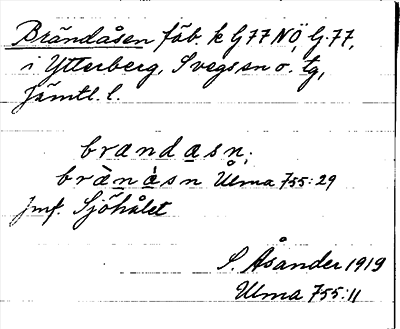 Brändåsen fäb. k G77NÖ, G:77,
i Ytterberg, Svegs sn o. tg,
Jämtl. l.
brandasn̥;
brànàsn Ulma 755:29
Jmf. Sjöhålet
S. Åsander 1919
Ulma 755:11